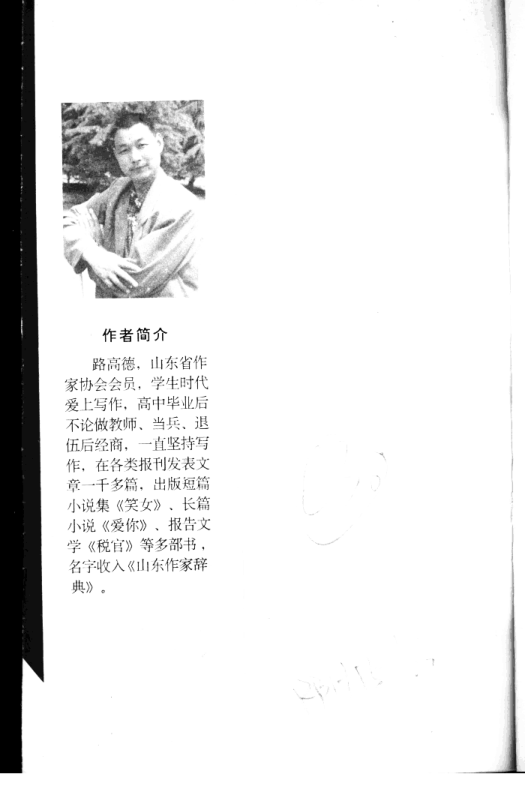 作者简介
路高德，山东省作
家协会会员，学生时代
爱上写作，高中毕业后
不论做教师、当兵、退
伍后经商，一直坚持写
作，在各类报刊发表文
章一千多篇，出版短篇
小说集《笑女》、长篇
小说《爱你》、报告文
学《税官》等多部书，
名字收入《山东作家辞
典》。